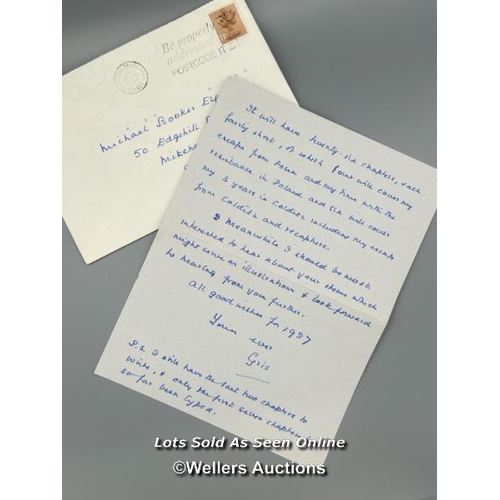 Be properly
addressed
POSTCODE IT
Michael Booker Esq
50 Edgehill
Mitcham
It will have twenty-six chapters, each
fairly short, of which four will cover my
escape from Posen and my time with the
resistance in Poland and six will cover
my 3 years in Colditz including my escape
from Colditz and recapture.
Meanwhile I should be most
interested to hear about your items which
might serve as illustrations & look forward
to hearing from you further.
All good wishes for 1987
Yours ever
Gris
P.S. I still have the last two chapters to
write, & only the first seven chapters
so far been typed.
Lots Sold As Seen Online
©Wellers Auctions